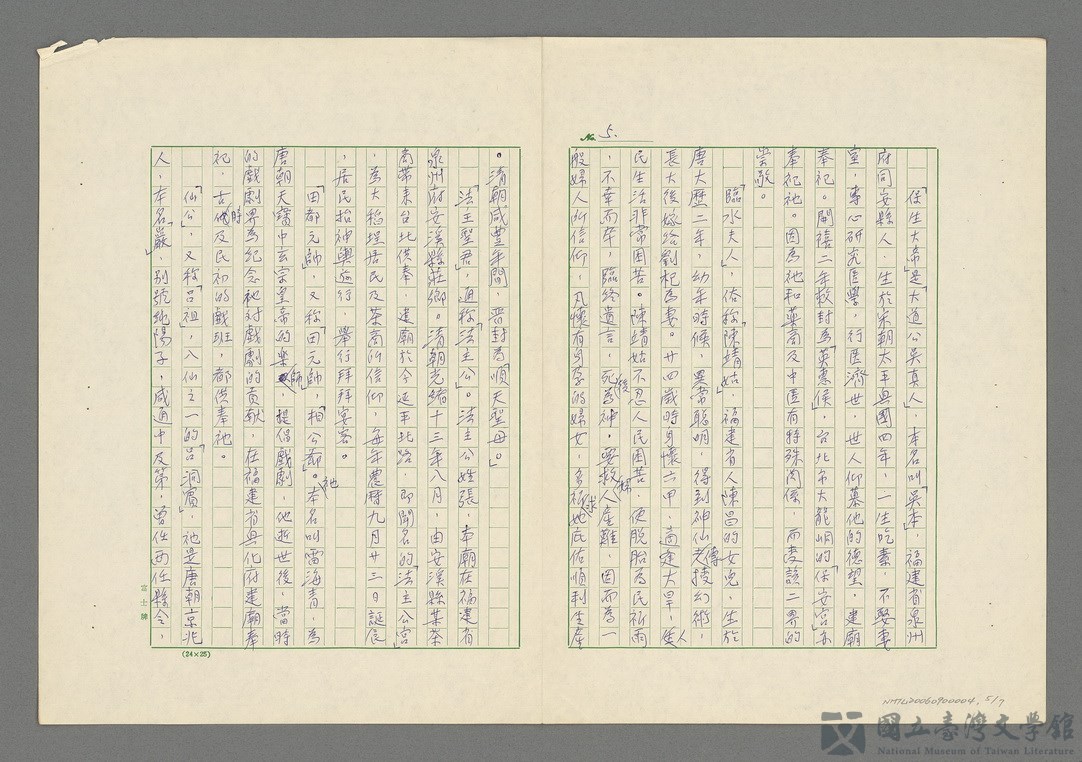 No. 5.
「保生大帝」是「大道公吳真人」，本名叫「吳夲」，福建省泉州
府同安縣人，生於宋朝太平興國四年，一生吃素，不娶妻
室，專心研究医學，行医濟世，世人仰慕他的德望，建廟
奉祀。開禧二年敕封為「英惠侯」，台北市大龍峒的「保安宮」亦
奉祀祂。因為祂和藥商及中医有特殊関係，而受該二界的
崇敬。
「臨水夫人」，俗称「陳靖姑」，福建省人陳昌的女兒，生於
唐大歷二年，幼年時候，異常聰明，得到神仙傳授幻術，
長大後嫁給劉杞為妻。廿四歲時身懷六甲，適逢大旱，人
民生活非常困苦。陳靖姑不忍人民困苦，便脫胎為民祈雨
，不幸而卒，臨終遺言，死後為神，要救人產難，因而為一
般婦人所信仰，凡懷有身孕的婦女，多祈求她庇佑順利生產
。清朝咸豐年間，晋封為「順天聖母」。
「法主聖君」，通称「法主公」。法主公姓張，本廟在福建省
泉州府安溪縣莊鄉。清朝光緒十三年八月，由安溪縣茶
商帶来台北供奉，建廟於今延平北路，即聞名的「法主公宮」
，為大稻埕居民及茶商所信仰，每年農曆九月廿三日誕辰
，居民抬神輿遊行，舉行拜拜宴客。
「田都元帥」，又称「田元帥」，「相公爺」。祂本名叫雷海青，為
唐朝天寶中玄宗皇帝的樂師，提倡戲劇，他逝世後，當時
的戲劇界為紀念祂对戲劇的貢献，在福建省興化府建廟奉
祀，古時及民初的戲班，都供奉祂。
「仙公」，又称「呂祖」，八仙之一的「呂洞賓」，祂是唐朝京兆
人，本名「巖」，別號純陽子，咸通中及第，曾任两任縣令，
(24×25)
富士牌
NMTL20060900004, 5/7
國立臺灣文學館
National Museum of Taiwan Literature